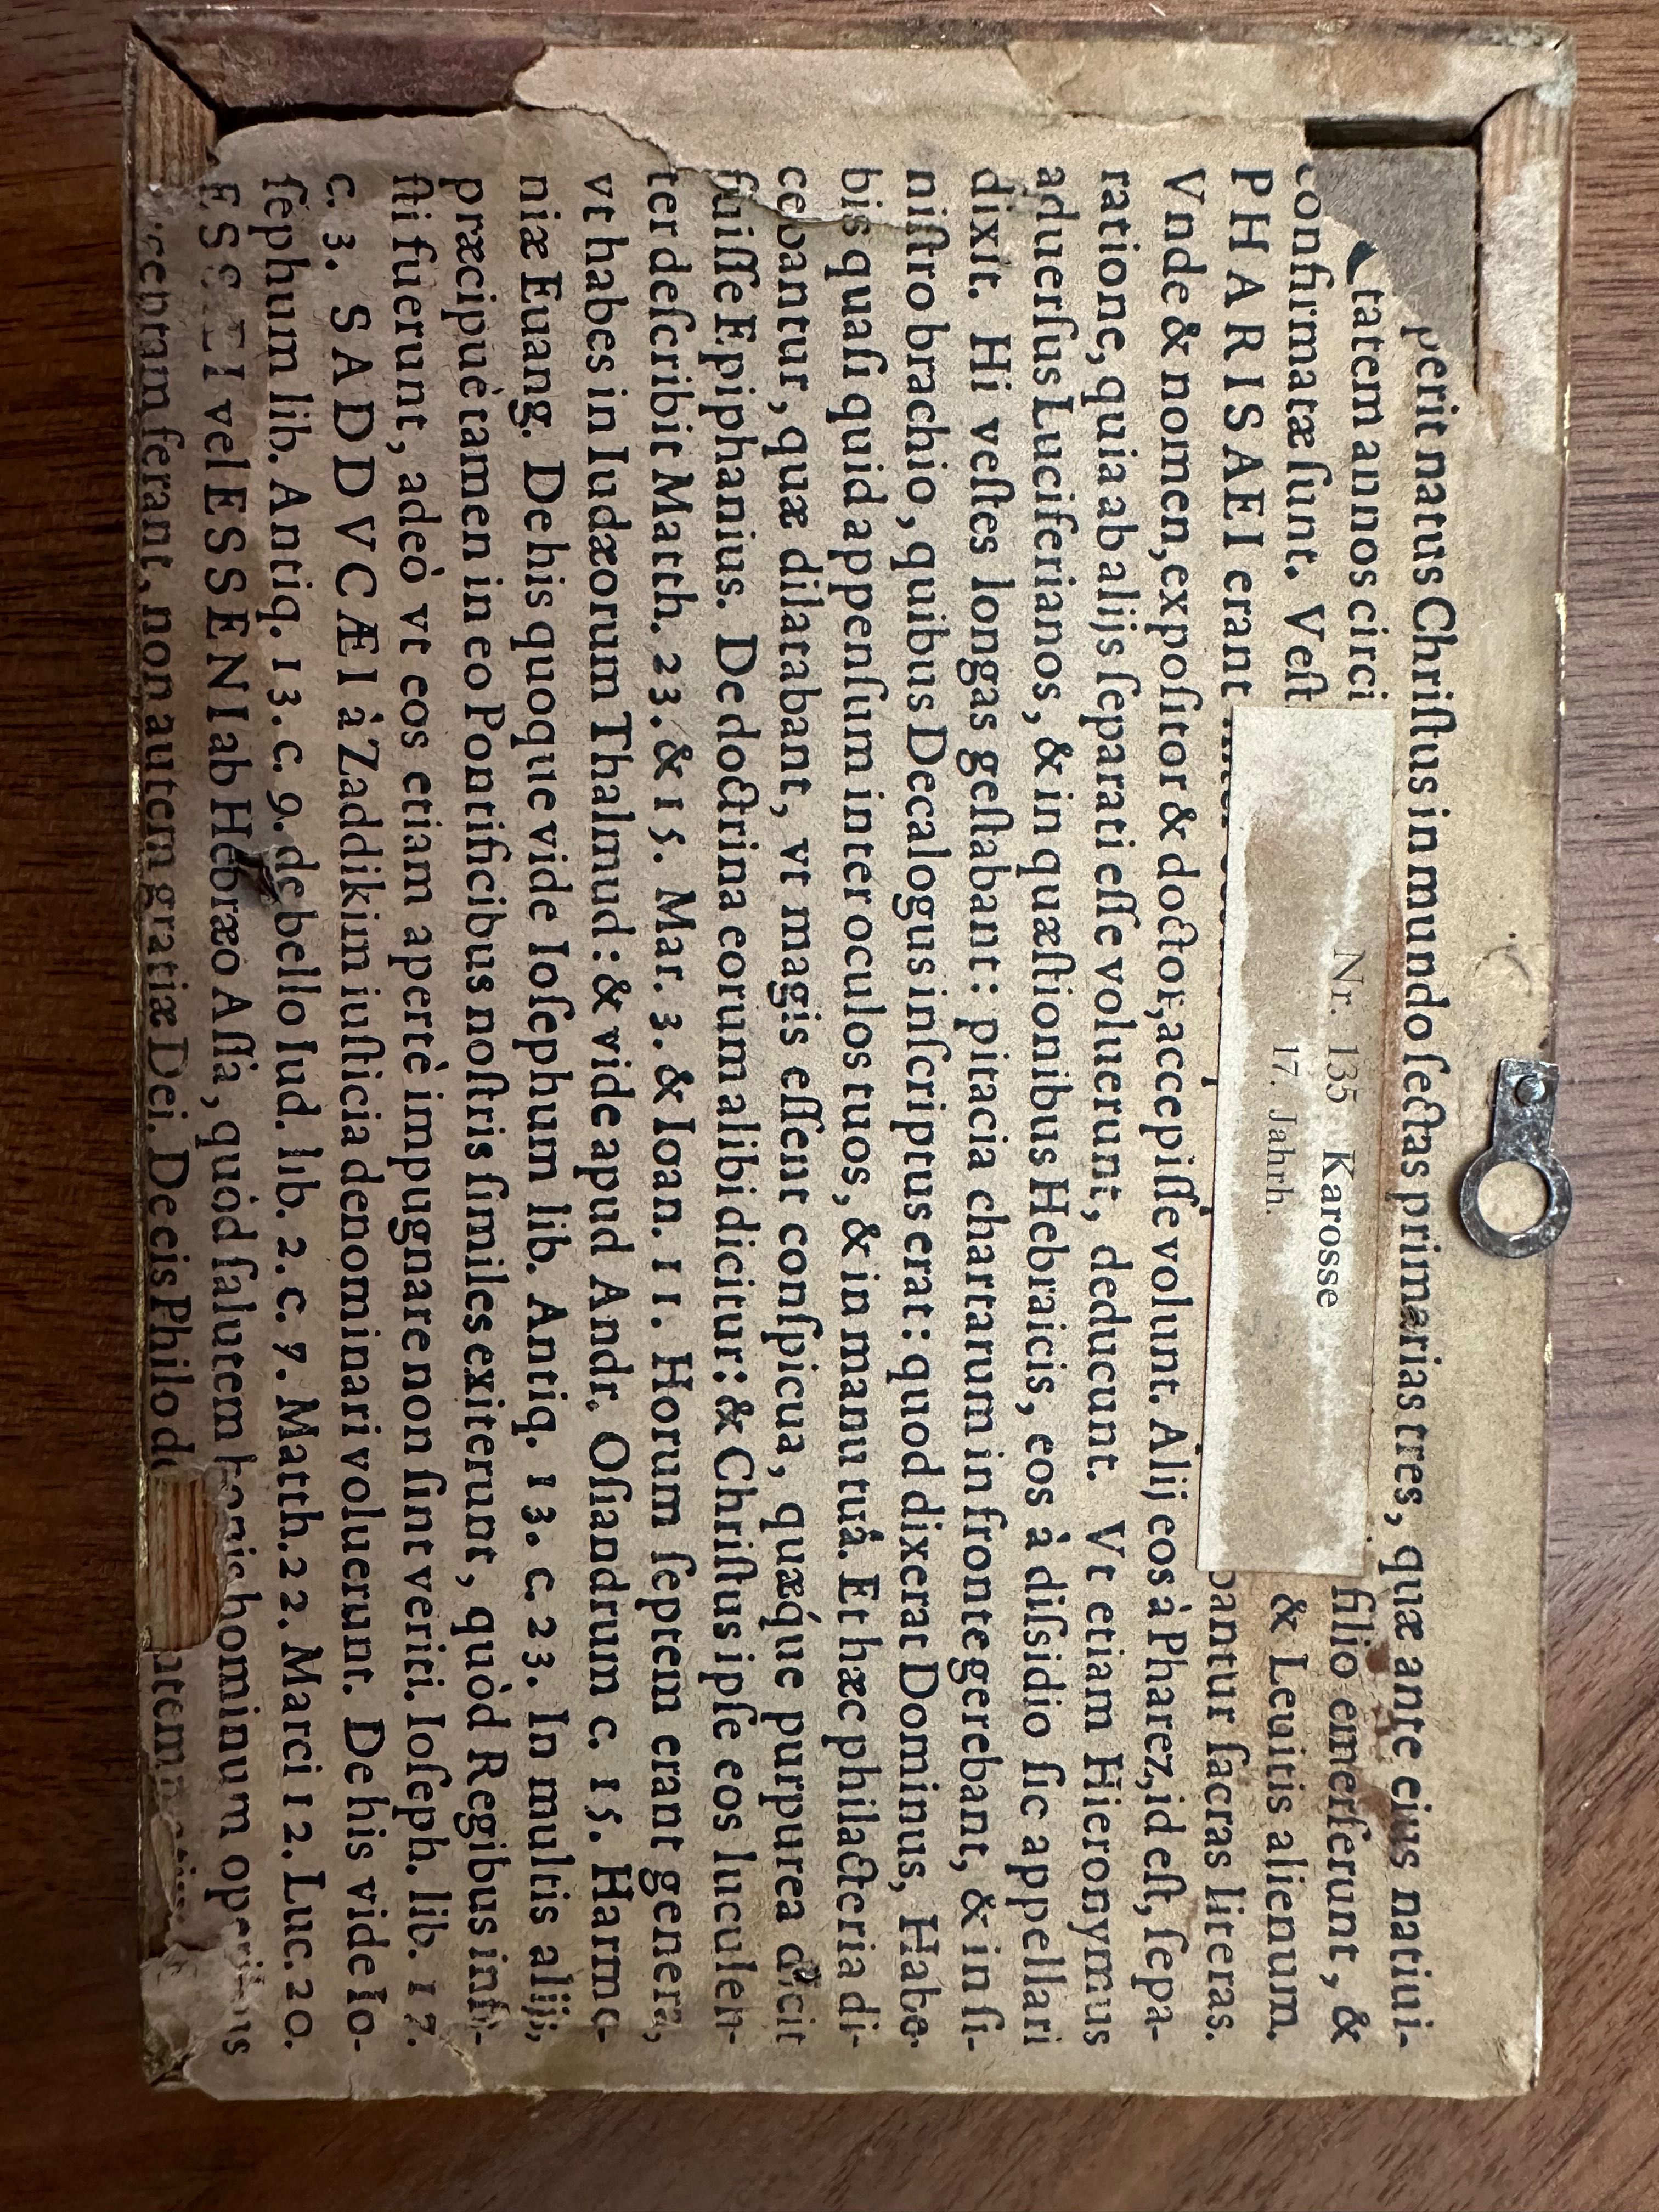 perit natus Chriſtus in mundo ſectas primarias tres, quæ ante eius natiui-
tatem annos circi filio emerſerunt, &
confirmatæ ſunt. Veſt & Leuitis alienum.
PHARISAEI erant bantur ſacras literas.
Vnde & nomen, expoſitor & doctor, accepiſſe volunt. Alij eos à Pharez, id eſt, ſepa-
ratione, quia ab alijs ſeparati eſſe voluerunt, deducunt. Vt etiam Hieronymus
aduerſus Luciferianos, & in quæſtionibus Hebraicis, eos à diſsidio ſic appellari
dixit. Hi veſtes longas geſtabant: pitacia chartarum in fronte gerebant, & in ſi-
niſtro brachio, quibus Decalogus inſcriptus erat: quod dixerat Dominus, Habe-
bis quaſi quid appenſum inter oculos tuos, & in manu tuâ. Et hæc philacteria di-
cebantur, quæ dilatabant, vt magis eſſent conſpicua, quæque purpurea dicit
fuiſſe Epiphanius. De doctrina eorum alibi dicitur: & Chriſtus ipſe eos luculen-
ter deſcribit Matth. 23. & 15. Mar. 3. & Ioan. 11. Horum ſeptem erant genera,
vt habes in Iudæorum Thalmud: & vide apud Andr. Oſiandrum c. 15. Harmo-
niæ Euang. De his quoque vide Ioſephum lib. Antiq. 13. c. 23. In multis alij,
præcipuè tamen in eo Pontificibus noſtris ſimiles exiterunt, quòd Regibus infe-
ſti fuerunt, adeò vt eos etiam apertè impugnare non ſint veriti. Ioſeph. lib. 17.
c. 3. SADDVCÆI à Zaddikim iuſticia denominari voluerunt. De his vide Io-
ſephum lib. Antiq. 13. c. 9. de bello Iud. lib. 2. c. 7. Matth. 22. Marci 12. Luc. 20.
ESSEI vel ESSENI ab Hebræo Aſſa, quòd ſalutem hominum operibus
ferant, non autem gratiæ Dei. De eis Philo
Nr. 135 Karosse
17. Jahrh.